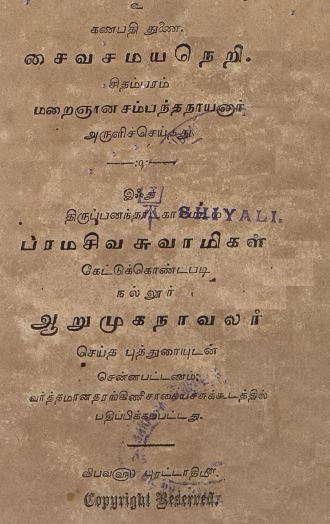 உ
கணபதி துணை.
சைவசமயநெறி.
சிதம்பரம்
மறைஞானசம்பந்தநாயனார்
அருளிச்செய்தது
இஃது
திருப்பனந்தாள்
SHIYALI.
ப்ரமசிவசுவாமிகள்
கேட்டுக்கொண்டபடி
நல்லூர்
ஆறுமுகநாவலர்
செய்த புத்துரையுடன்
சென்னபட்டணம்:
வர்த்தமானதரங்கிணீசாகையச்சுக்கூடத்தில்
பதிப்பிக்கப்பட்டது.
விபவ௵ புரட்டாதி௴
Copyright Reserved.